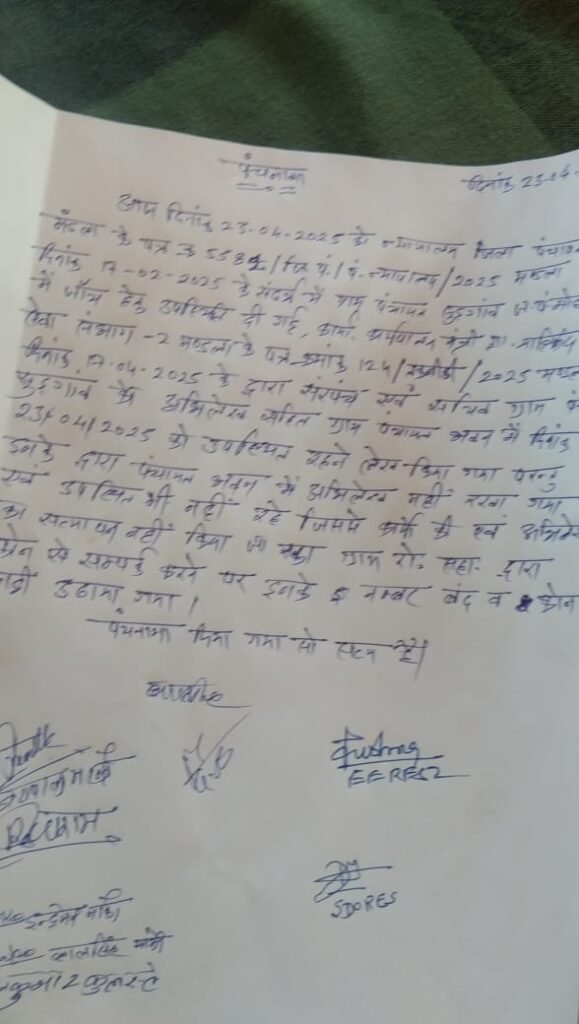 पंचनामा
दिनांक 23-04-
आज दिनांक 23-04-2025 को न्यायालय जिला पंचायत
मंडला के पत्र क्र 5582/जि.पं./पं. न्यायालय/2025 मण्डला
दिनांक 17-02-2025 के संदर्भ में ग्राम पंचायत
में जाँच हेतु उपस्थिति दी गई, कार्या. कार्यपालन यंत्री ग्रा. यांत्रिकी
सेवा संभाग-2 मण्डला के पत्र क्रमांक 124/ /2025 मण्डला
दिनांक 17-04-2025 के द्वारा सरपंच एवं सचिव ग्राम पं
को अभिलेख सहित ग्राम पंचायत भवन में दिनांक
23/04/2025 को उपस्थित रहने लेख किया गया परन्तु
इनके द्वारा पंचायत भवन में अभिलेख नहीं रखा गया
एवं उपस्थित भी नहीं रहे जिससे कार्य की एवं अभिलेख
का सत्यापन नहीं किया जा सका ग्राम रो. सहा. द्वारा
फोन से सम्पर्क करने पर इनके नम्बर बंद व फोन
नही उठाया गया।
पंचनामा किया गया सो सत्य है।
EE RES2
SDO RES